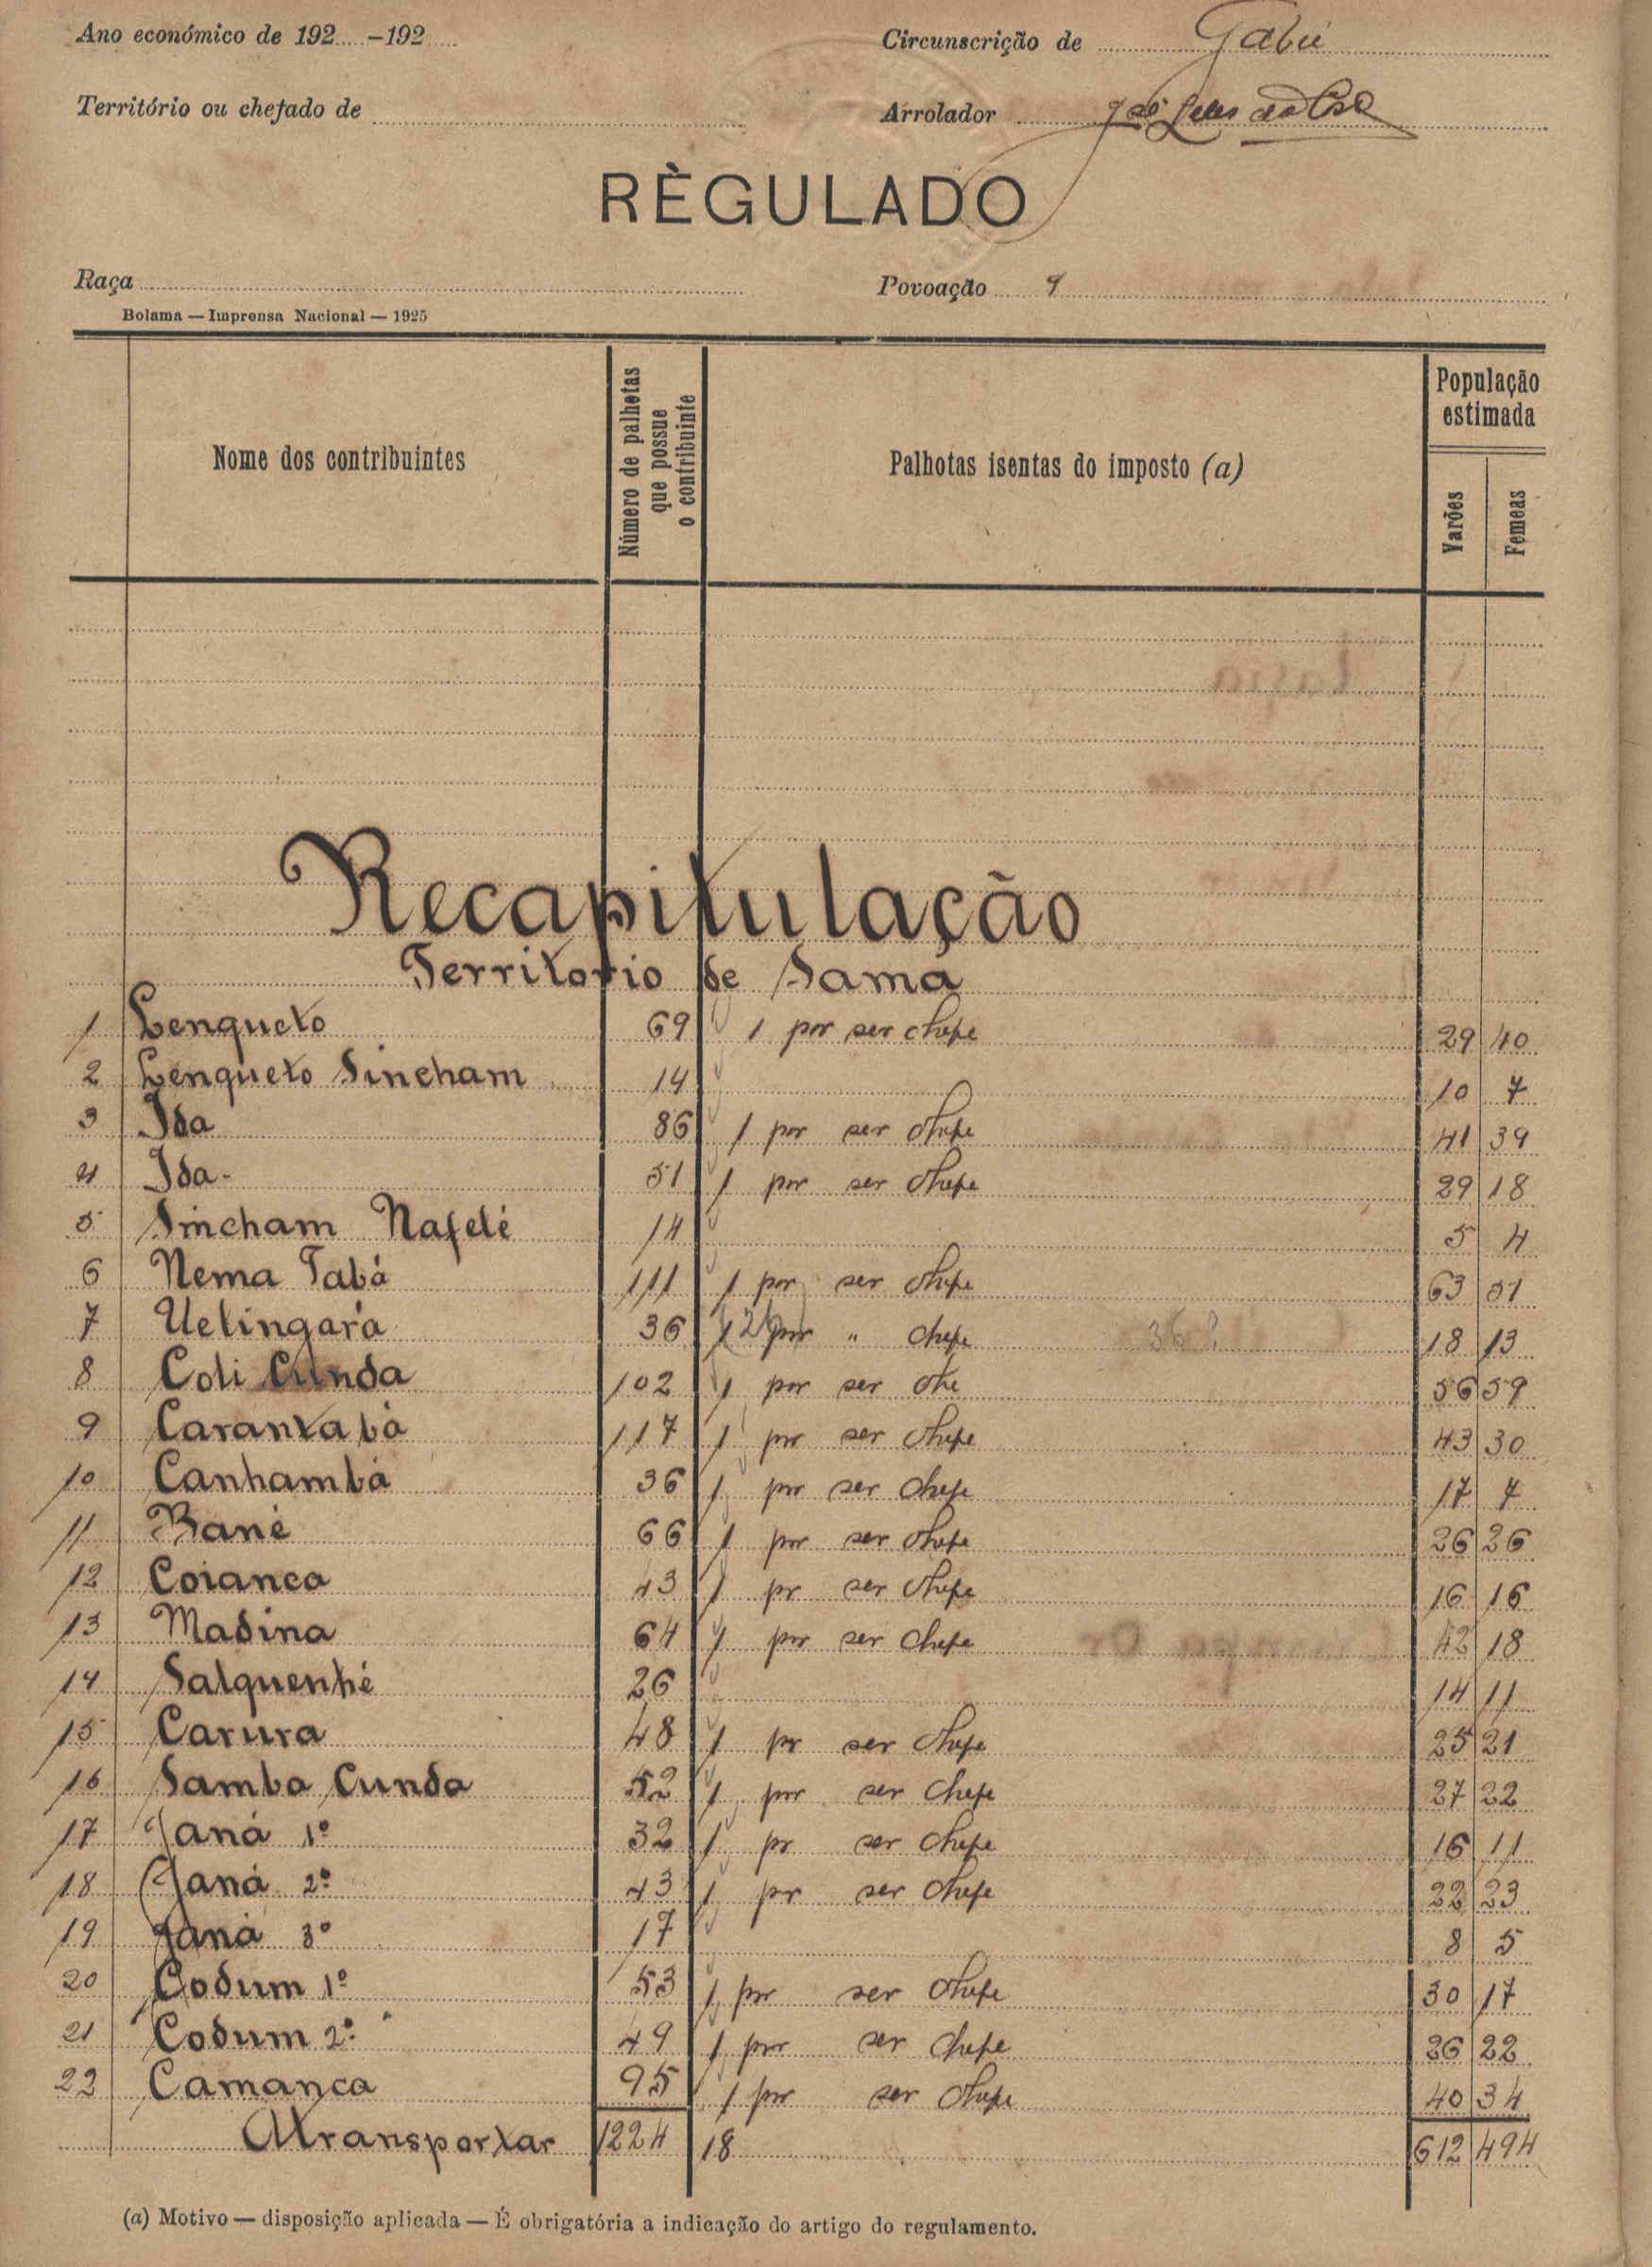 Ano económico de 192.... -192....
Circunscrição de Gabú
Território ou chefado de
Arrolador
RÈGULADO
Raça
Povoação 9
Bolama — Imprensa Nacional — 1925
Nome dos contribuintes
Número de palhotas que possue o contribuinte
Palhotas isentas do imposto (a)
População estimada
Varões
Femeas
Recapitulação
Territorio de Sama
1 Lenqueto 69 1 por ser chefe 29 40
2 Lenqueto Sincham 14 10 7
3 Ida 86 1 por ser chefe 41 39
4 Ida - 51 1 por ser chefe 29 18
5 Sincham Nafelé 14 5 4
6 Nema Tabá 111 1 por ser chefe 63 51
7 Uelingará 36 1 por " chefe 36? 18 13
8 Coli Cunda 102 1 por ser che 56 59
9 Carantabà 117 1 por ser chefe 43 30
10 Canhambá 36 1 por ser chefe 17 7
11 Bané 66 1 por ser chefe 26 26
12 Coianca 43 1 pr ser chefe 16 16
13 Madina 64 1 por ser chefe 42 18
14 Salquenhé 26 14 11
15 Carura 48 1 pr ser chefe 25 21
16 Samba Cunda 52 1 por ser chefe 27 22
17 Janá 1º 32 1 pr ser chefe 16 11
18 Janá 2º 43 1 pr ser chefe 22 23
19 Janá 3º 17 8 5
20 Codum 1º 53 1 por ser chefe 30 17
21 Codum 2º 49 1 por ser chefe 26 22
22 Camanca 95 1 por ser chefe 40 34
A transportar 1224 18 612 494
(a) Motivo — disposição aplicada — É obrigatória a indicação do artigo do regulamento.